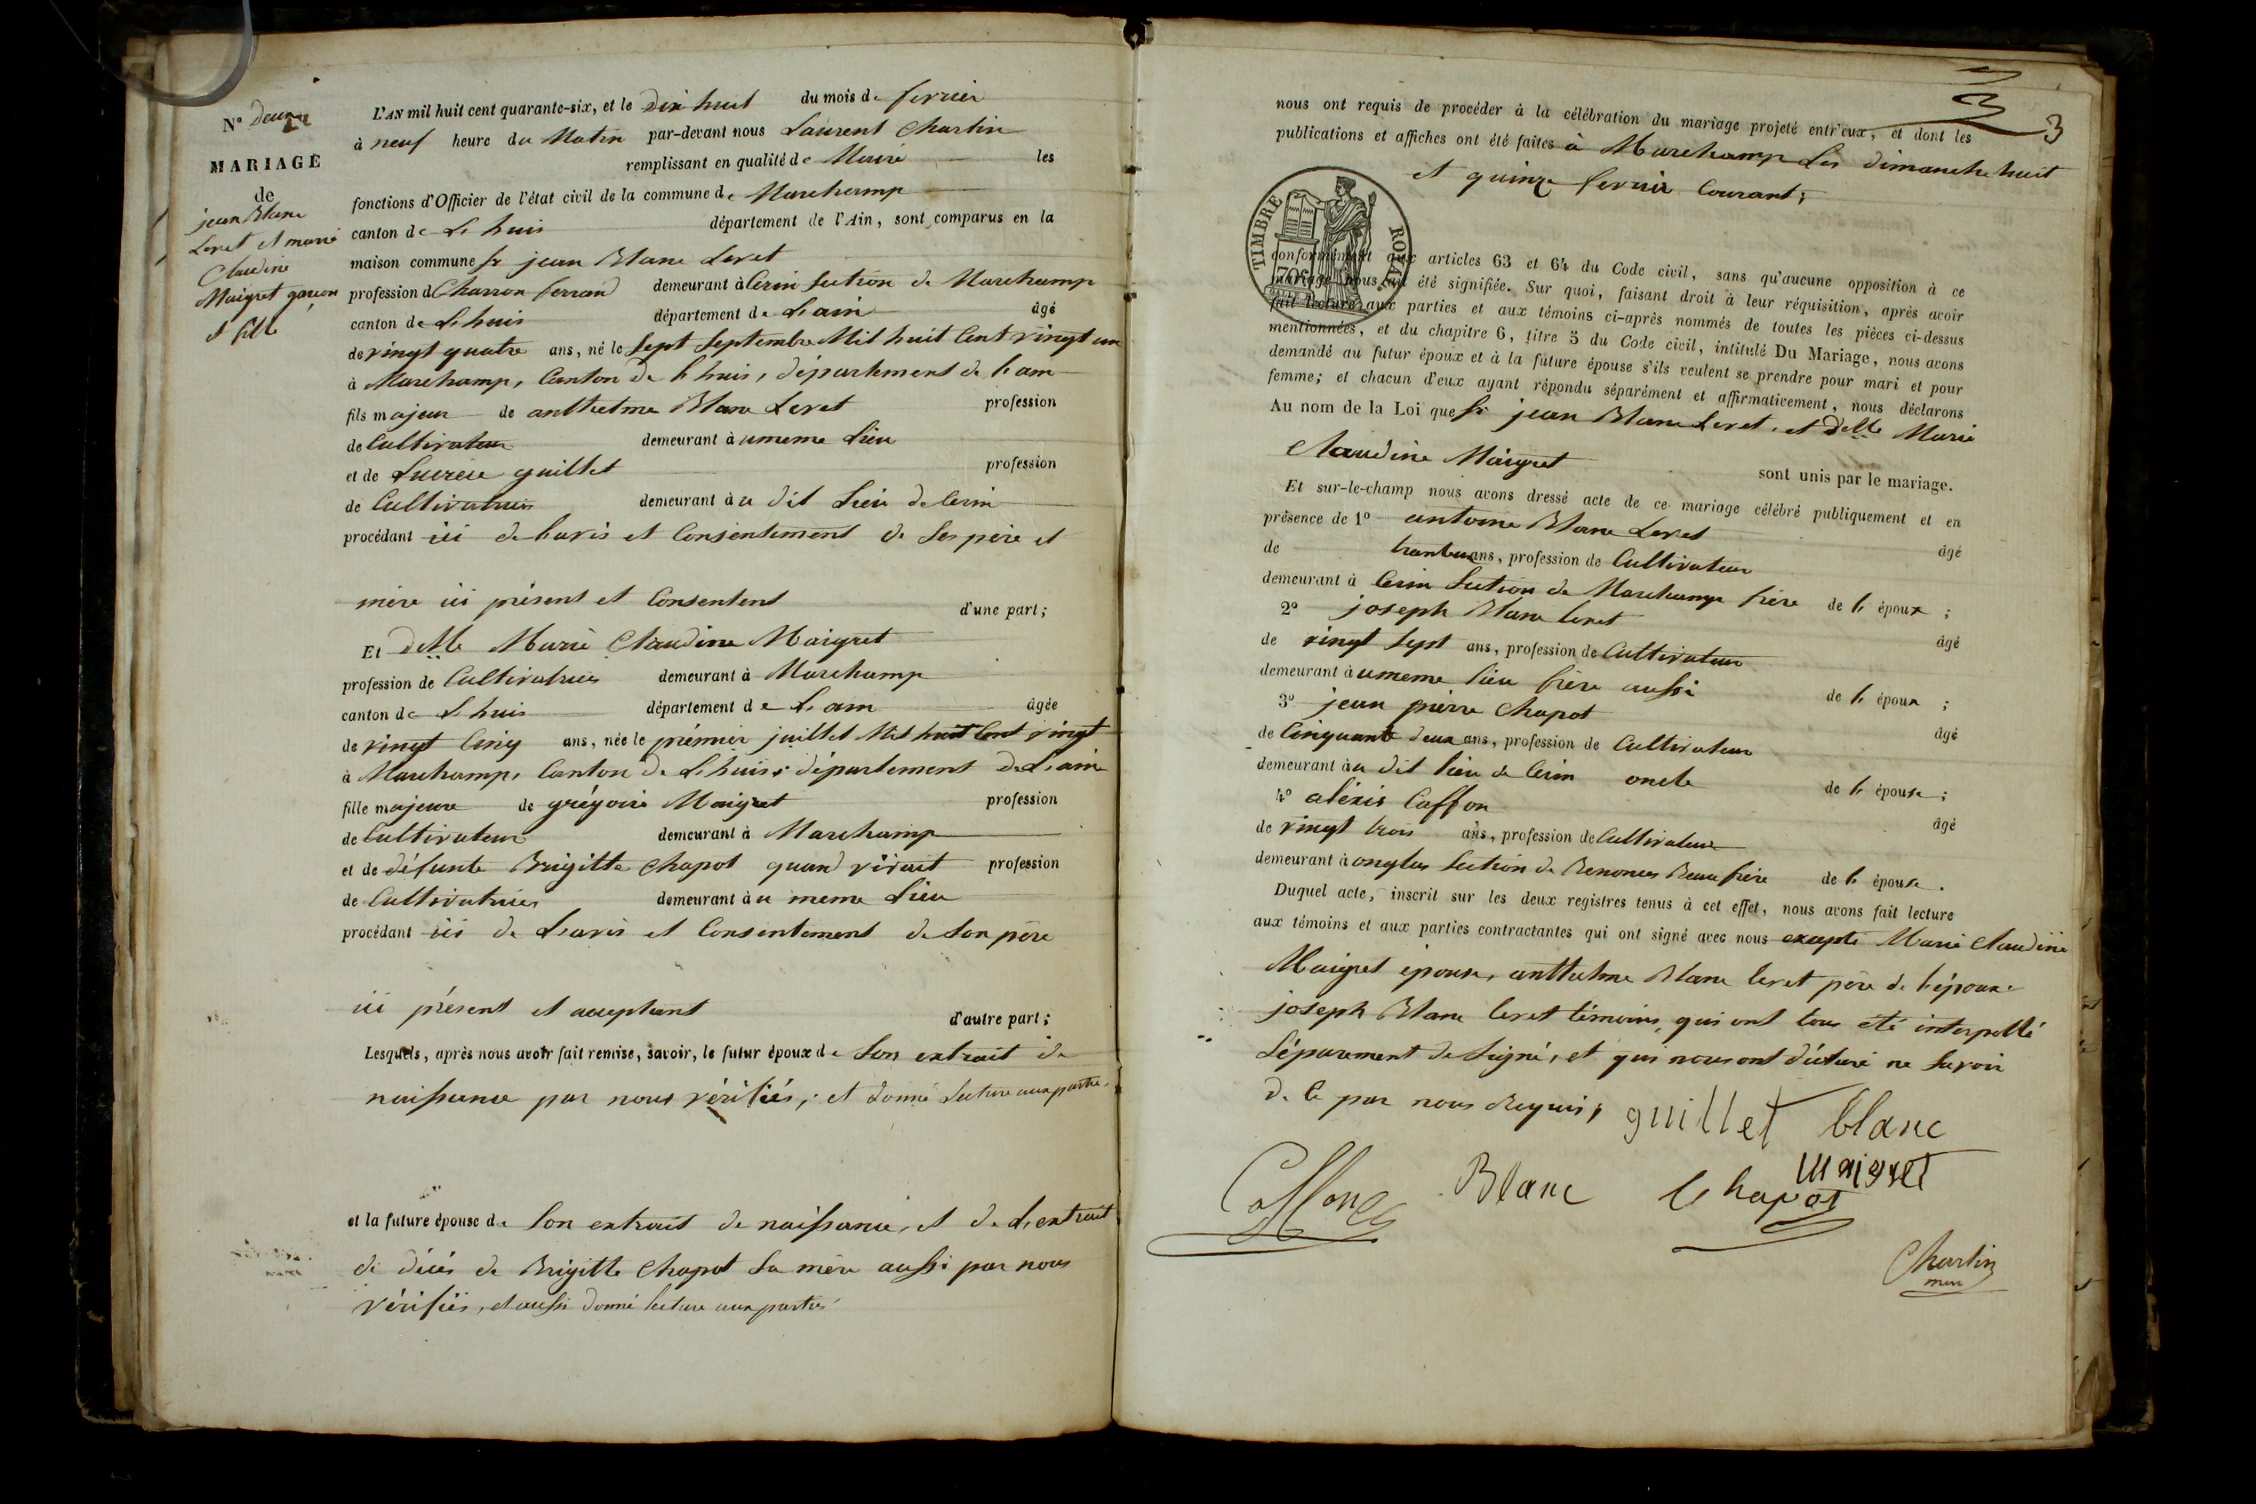 N° deux
MARIAGE
de
jean Blanc
Leret et marie
Claudine
Maigret garcon
et fille
L'AN mil huit cent quarante-six, et le Dix huit du mois de fevrier
à neuf heure du Matin par-devant nous Laurent Charlin
remplissant en qualité de Maire les
fonctions d'Officier de l'état civil de la commune de Marchamp
canton de Lhuis département de l'Ain, sont comparus en la
maison commune sr jean Blanc Leret
profession de Charron ferrand demeurant à Cerin section de Marchamp
canton de Lhuis département de L'ain âgé
de vingt quatre ans, né le sept septembre Mil huit Cent vingt un
à Marchamp, Canton de Lhuis, département de L'ain
fils majeur de anthelme Blanc Leret profession
de Cultivateur demeurant à umeme Lieu
et de Lucrece guillet profession
de Cultivatrice demeurant à u dit Lieu de Cerin
procédant ici de L'avis et Consentement de Ses père et
mère ici présent et Consentent d'une part;
Et delle Marie Claudine Maigret
profession de Cultivatrice demeurant à Marchamp
canton de Lhuis département de L'ain âgée
de vingt Cinq ans, née le premier juillet Mil huit Cent vingt
à Marchamp, Canton de Lhuis, département de L'ain
fille majeure de grégoire Maigret profession
de Cultivateur demeurant à Marchamp
et de défunte Brigitte Chapot quand vivait profession
de Cultivatrice demeurant à u meme Lieu
procédant ici de L'avis et Consentement de Son père
ici présent et acceptant d'autre part;
Lesquels, après nous avoir fait remise, savoir, le futur époux de Son extrait de
naissance par nous vérifiés, et donné Lecture aux partie
et la future épouse de Son extrait de naissance, et de L'extrait
de décès de Brigitte Chapot Sa mère aussi par nous
vérifiés, et aussi donné lecture aux parties
3
nous ont requis de procéder à la célébration du mariage projeté entr'eux, et dont les
publications et affiches ont été faites à Marchamp Les dimanche huit
et quinze fevrier Courant;
TIMBRE ROYAL
70c
conformément aux articles 63 et 64 du Code civil, sans qu'aucune opposition à ce
mariage nous ait été signifiée. Sur quoi, faisant droit à leur réquisition, après avoir
fait lecture aux parties et aux témoins ci-après nommés de toutes les pièces ci-dessus
mentionnées, et du chapitre 6, titre 5 du Code civil, intitulé Du Mariage, nous avons
demandé au futur époux et à la future épouse s'ils veulent se prendre pour mari et pour
femme; et chacun d'eux ayant répondu séparément et affirmativement, nous déclarons
Au nom de la Loi que sr jean Blanc Leret, et delle Marie
Claudine Maigret sont unis par le mariage.
Et sur-le-champ nous avons dressé acte de ce mariage célébré publiquement et en
présence de 1° antoine Blanc Leret âgé
de ans, profession de Cultivateur
demeurant à Cerin Section de Marchamp frère de L' époux;
2° joseph Blanc Leret âgé
de vingt Sept ans, profession de Cultivateur
demeurant à umeme lieu frère aussi de L' époux;
3° jean pierre Chapot âgé
de Cinquante deux ans, profession de Cultivateur
demeurant à u dit lieu de Cerin oncle de L' épouse;
4° aléxis Caffon âgé
de vingt trois ans, profession de Cultivateur
demeurant à onglas Section de Benonces Beau frère de L' épouse.
Duquel acte, inscrit sur les deux registres tenus à cet effet, nous avons fait lecture
aux témoins et aux parties contractantes qui ont signé avec nous excepté Marie Claudine
Maigret épouse, anthelme Blanc Leret père de l'époux
joseph Blanc Leret témoins, qui ont tous été interpellé
Séparement de Signé, et qui nous ont déclaré ne Savoir
de Ce par nous Requis,
guillet blanc
Caffon Blanc Chapot maigret
Charlin
maire